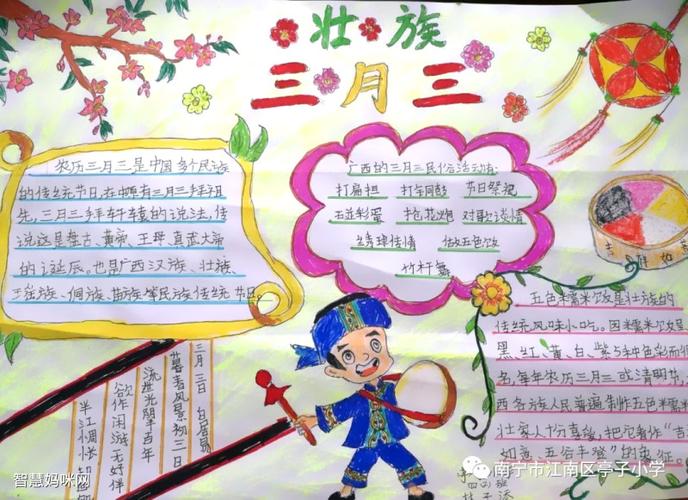 壮族
三月三
农历三月三是中国多个民族
的传统节日,在中原有三月三拜祖
先,三月三拜轩辕的说法,传
说这是盘古、黄帝、王母、真武大帝
的诞辰,也是广西汉族、壮族、
瑶族、侗族、苗族等民族传统节日。
广西的三月三民俗活动:
打扁担 打铜鼓 节日祭祝
碰彩蛋 抢花炮 对歌谈情
绣球传情 做五色饭
竹杆舞
吉 如意
五色糯米饭是壮族的
传统风味小吃。因糯米饭呈
黑、红、黄、白、紫5种色彩而得
名,每年农历三月三或清明节,
西各族人民普遍制作五色糯米
壮家人十分喜爱,把它看作"吉
如意、五谷丰登"的象征。
三月三日 白居易
暮春风景初三日
流世光阴半百年
欲作闲游无好伴
半江惆怅却回
智慧妈咪网
南宁市江南区亭子小学